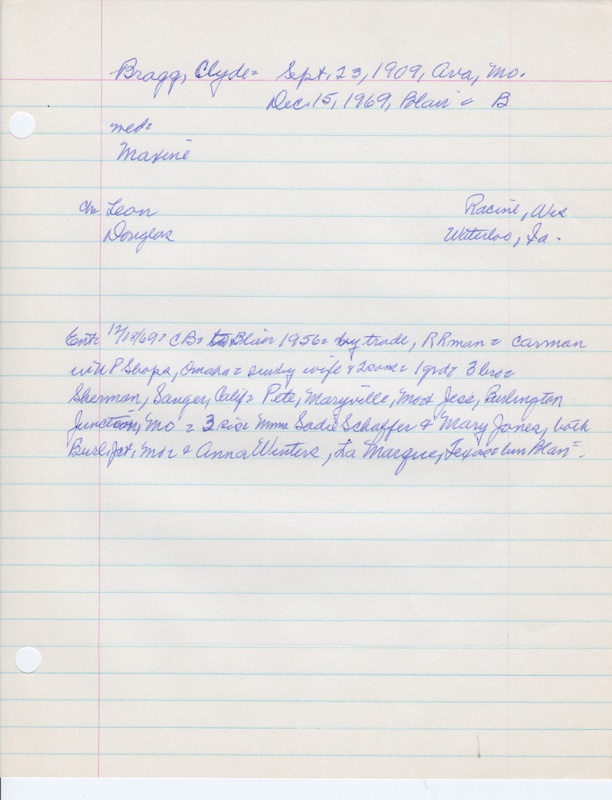 Bragg, Clyde= Sept. 23, 1909, Ava, Mo.
Dec. 15, 1969, Blair = B
med=
Maxine
Ch= Leon Racine, Wis
Douglas Waterloo, Ia.
Ent= 12/18/69= CB= to Blair 1956= by trade, RRman= carman
in UP Shops, Omaha= survd by wife & 2 sons= 1 grd= 3 bros=
Sherman, Sanger, Calif= Pete, Maryville, Mo & Jess, Burlington
Junction, Mo = 3 sis= Mmes Sadie Schaffer & Mary Jones, both
Burl. Jct, Mo= & Anna Winters, La Marque, Texas= bur Blair=